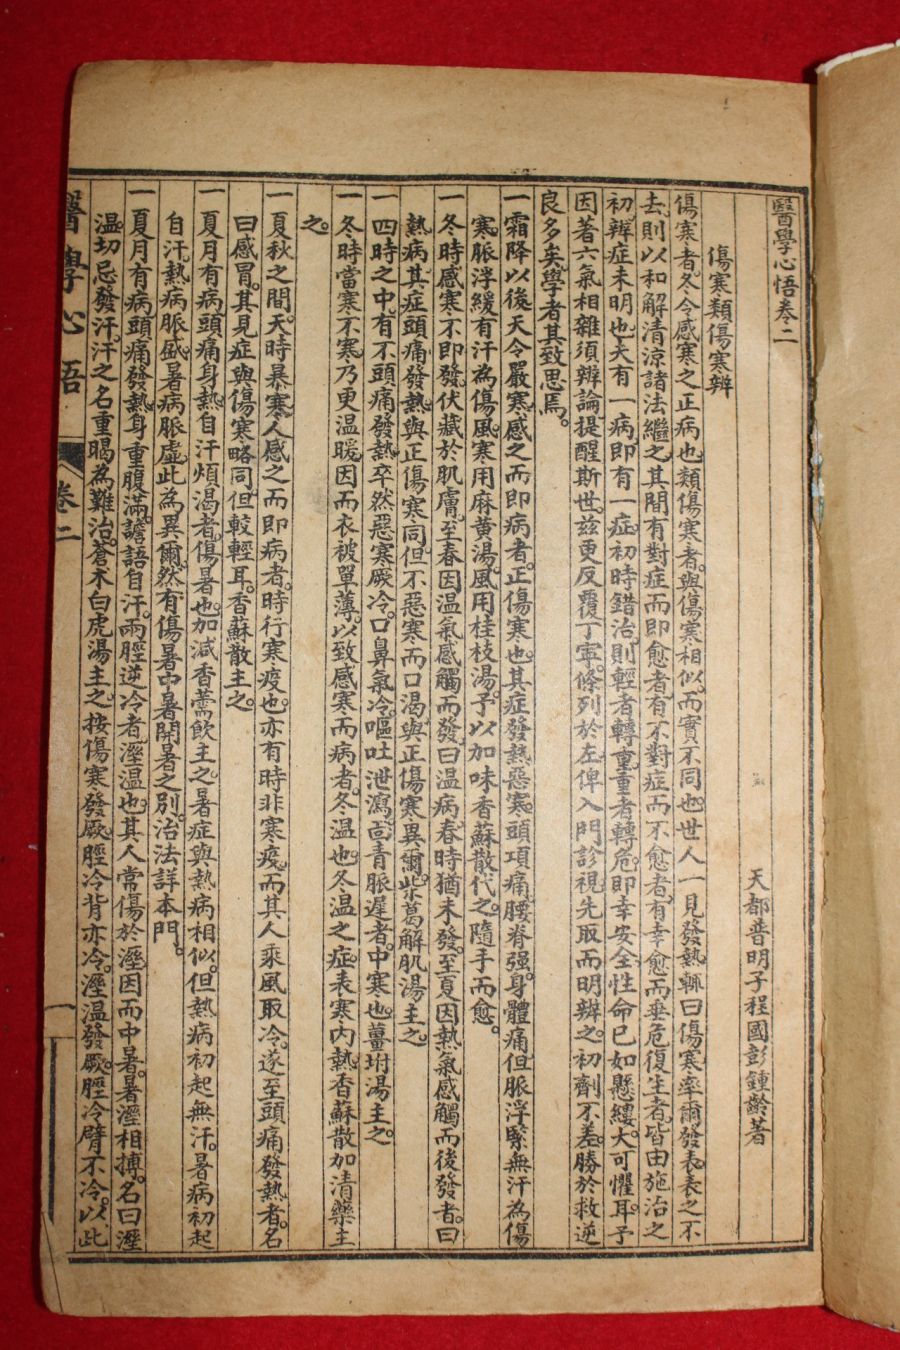 醫學心悟卷二
天都普明子程國彭鍾齡著
傷寒類傷寒辨
傷寒者。冬令感寒之正病也。類傷寒者。與傷寒相似。而實不同也。世人一見發熱。輒曰傷寒。率爾發表。表之不
去。則以和解清涼諸法繼之。其間有對症而即愈者。有不對症而不愈者。有幸愈而垂危復生者。皆由施治之
初。辨症未明也。夫有一病。即有一症。初時錯治。則輕者轉重。重者轉危。即幸安全。性命已如懸縷。大可懼耳。予
因著六氣相雜須辨論。提醒斯世。茲更反覆丁寧。條列於左。俾入門診視。先取而明辨之。初劑不差。勝於救逆
良多矣。學者其致思焉。
一霜降以後。天令嚴寒。感之而即病者。正傷寒也。其症發熱惡寒。頭項痛。腰脊强。身體痛。但脈浮緊無汗為傷
寒。脈浮緩有汗為傷風。寒用麻黄湯。風用桂枝湯。予以加味香蘇散代之。隨手而愈。
一冬時感寒不即發。伏藏於肌膚。至春因温氣感觸而發。曰温病。春時猶未發。至夏因熱氣感觸而後發者。曰
熱病。其症頭痛發熱。與正傷寒同。但不惡寒而口渴。與正傷寒異爾。柴葛解肌湯主之。
一四時之中。有不頭痛發熱。卒然惡寒厥冷。口鼻氣冷。嘔吐泄瀉。面青脈遲者。中寒也。薑坿湯主之。
一冬時當寒不寒。乃更温暖。因而衣被單薄。以致感寒而病者。冬温也。冬温之症。表寒内熱。香蘇散加清藥主
之。
一夏秋之間。天時暴寒。人感之而即病者。時行寒疫也。亦有時非寒疫。而其人乘風取冷。遂至頭痛發熱者。名
曰感冒。其見症與傷寒略同。但較輕耳。香蘇散主之。
一夏月有病頭痛身熱。自汗煩渴者。傷暑也。加減香薷飲主之。暑症與熱病相似。但熱病初起無汗。暑病初起
自汗。熱病脈盛。暑病脈虛。此為異爾。然有傷暑中暑閉暑之别。治法詳本門。
一夏月有病頭痛發熱。身重腹滿。譫語自汗。兩脛逆冷者。溼温也。其人常傷於溼。因而中暑。暑溼相摶。名曰溼
温。切忌發汗。汗之名重暍。為難治。蒼朮白虎湯主之。按傷寒發厥。脛冷背亦冷。溼温發厥。脛冷臂不冷。以此
醫學心悟
卷二
一